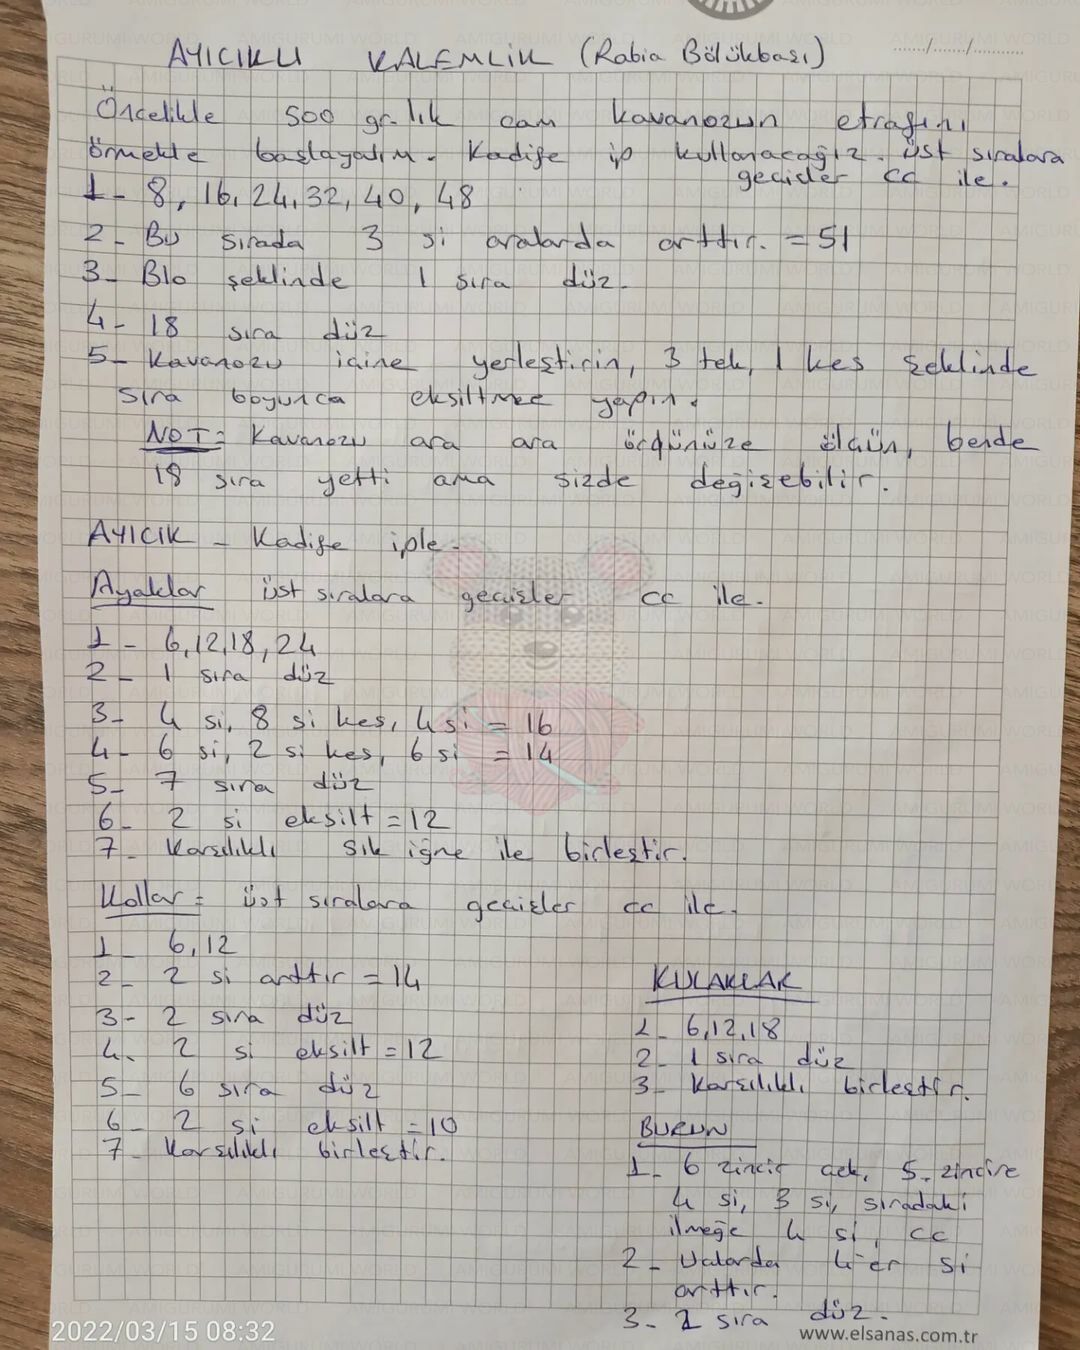 AYICIKLI KALEMLİK (Rabia Bölükbaşı) ......../......../............
Öncelikle 500 gr.lık cam kavanozun etrafını
örmekle başlayalım. Kadife ip kullanacağız. üst sıralara
geçişler cc ile.
1- 8, 16, 24, 32, 40, 48
2- Bu sırada 3 si aralarda arttır. = 51
3- Blo şeklinde 1 sıra düz.
4- 18 sıra düz
5- Kavanozu içine yerleştirin, 3 tek, 1 kes şeklinde
sıra boyunca eksiltmee yapın.
NOT: Kavanozu ara ara örgünüze ölçün, bende
18 sıra yetti ama sizde değişebilir.
AYICIK - Kadife iple.
Ayaklar üst sıralara geçişler cc ile.
1- 6,12,18,24
2- 1 sıra düz
3- 4 si, 8 si kes, 4 si = 16
4- 6 si, 2 si kes, 6 si = 14
5- 7 sıra düz
6- 2 si eksilt = 12
7- Karşılıklı sık iğne ile birleştir.
Kollar = üst sıralara geçişler cc ile.
1- 6,12
2- 2 si arttır = 14
3- 2 sıra düz
4- 2 si eksilt = 12
5- 6 sıra düz
6- 2 si eksilt = 10
7- Karşılıklı birleştir.
KULAKLAR
1- 6,12,18
2- 1 sıra düz
3- Karşılıklı birleştir.
BURUN
1- 6 zincir çek, 5. zincire
4 si, 3 si, sıradaki
ilmeğe 4 si, cc
2- Uclarda 4'er si
arttır.
3- 1 sıra düz.
2022/03/15 08:32
www.elsanas.com.tr